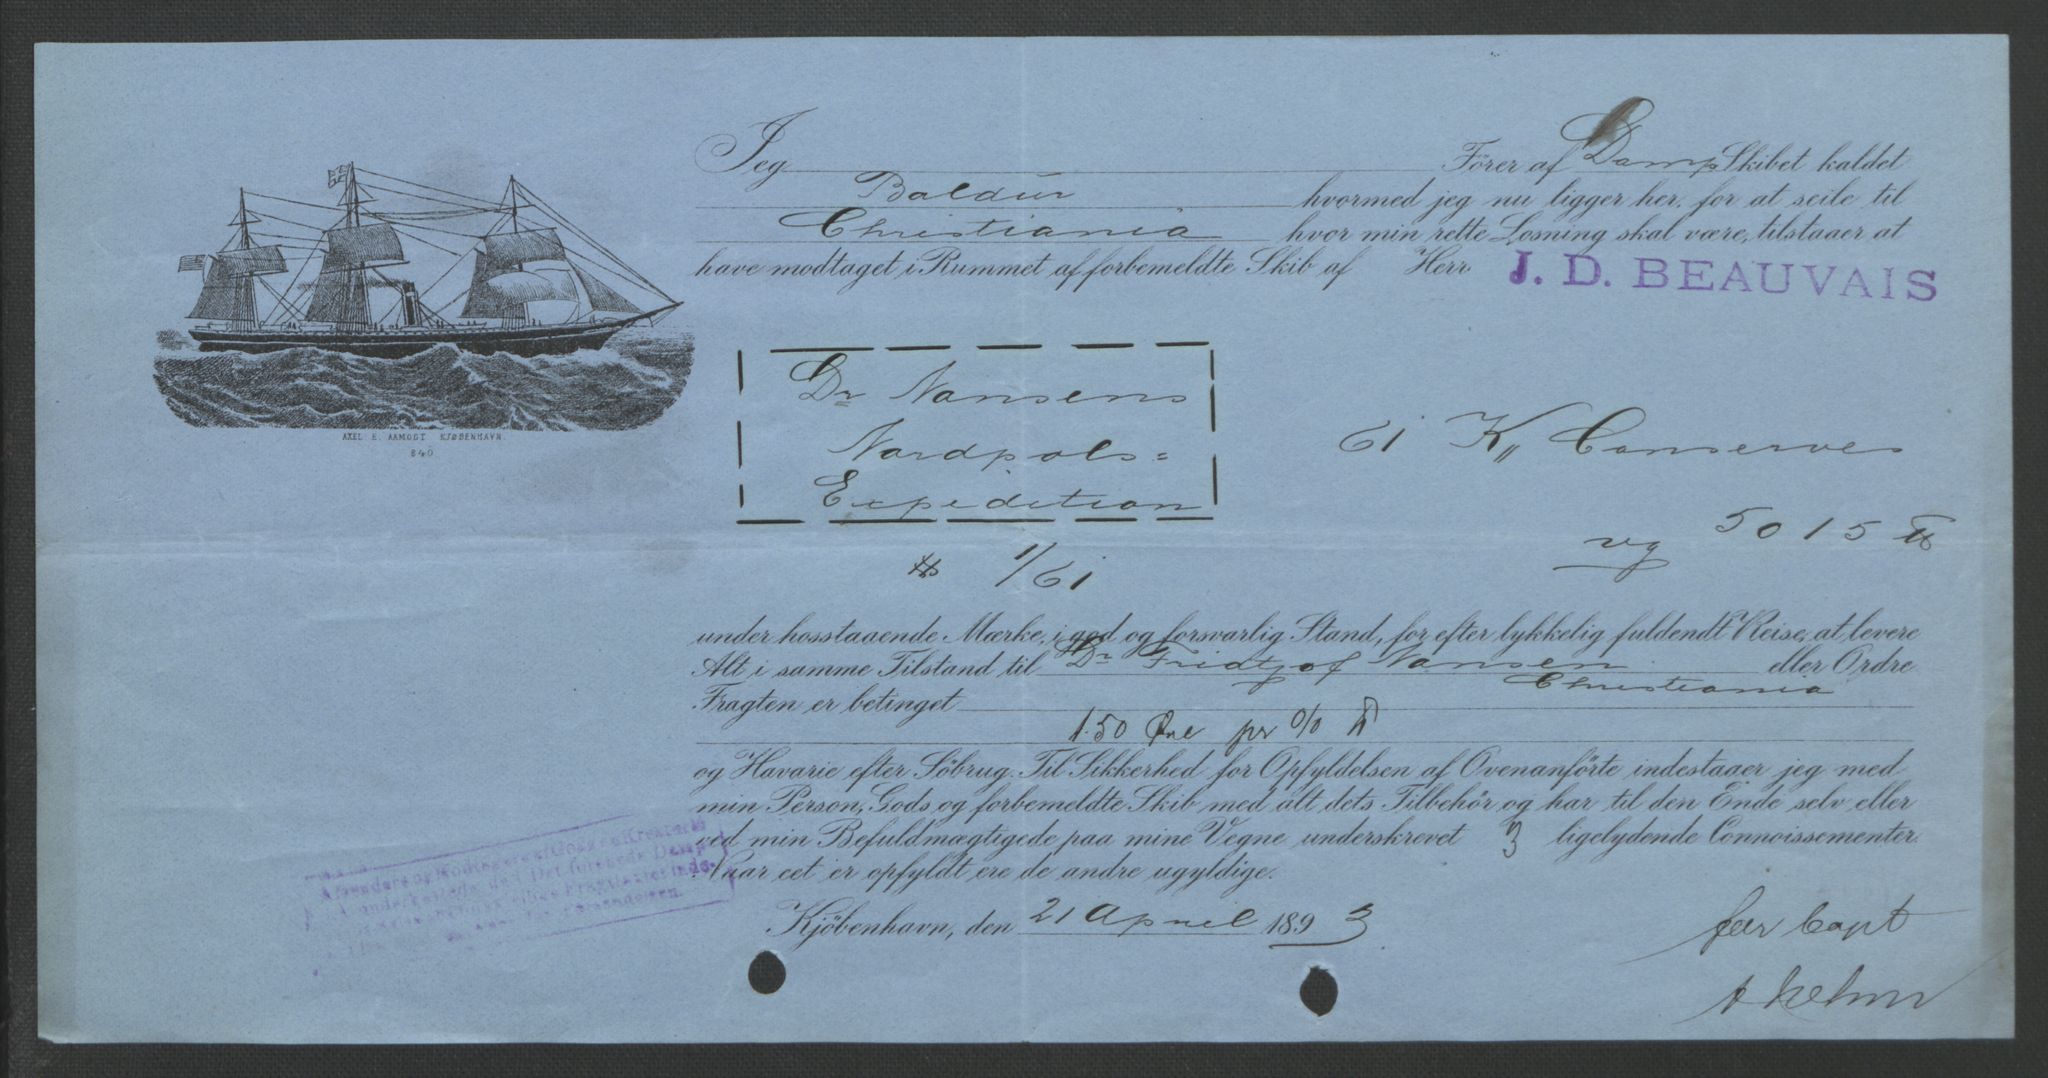 Jeg Förer af Damp Skibet kaldet
Baldur hvormed jeg nu ligger her, for at seile til
Christiania hvor min rette Losning skal være, tilstaaer at
have modtaget i Rummet af forbemeldte Skib af Herr J. D. BEAUVAIS
AXEL E. AAMODT KJØBENHAVN.
840
Dr Nansens
Nordpols=
Expedition
61 K,, Conserves
vg 5015 ℔
# 1/61
under hosstaaende Mærke, i god og forsvarlig Stand, for efter lykkelig fuldendt Reise, at levere
Alt i samme Tilstand til Dr Fridtjof Nansen eller Ordre
Christiania
Fragten er betinget
1.50 Øre pr % ℔
og Havarie efter Söbrug. Til Sikkerhed for Opfyldelsen af Ovenanförte indestaaer jeg med
min Person, Gods og forbemeldte Skib med alt dets Tilbehör og har til den Ende selv eller
ved min Befuldmægtigede paa mine Vegne underskrevet 3 ligelydende Connoissementer.
Naar eet er opfyldt ere de andre ugyldige.
Kjöbenhavn, den 21 April 1893
for Capt